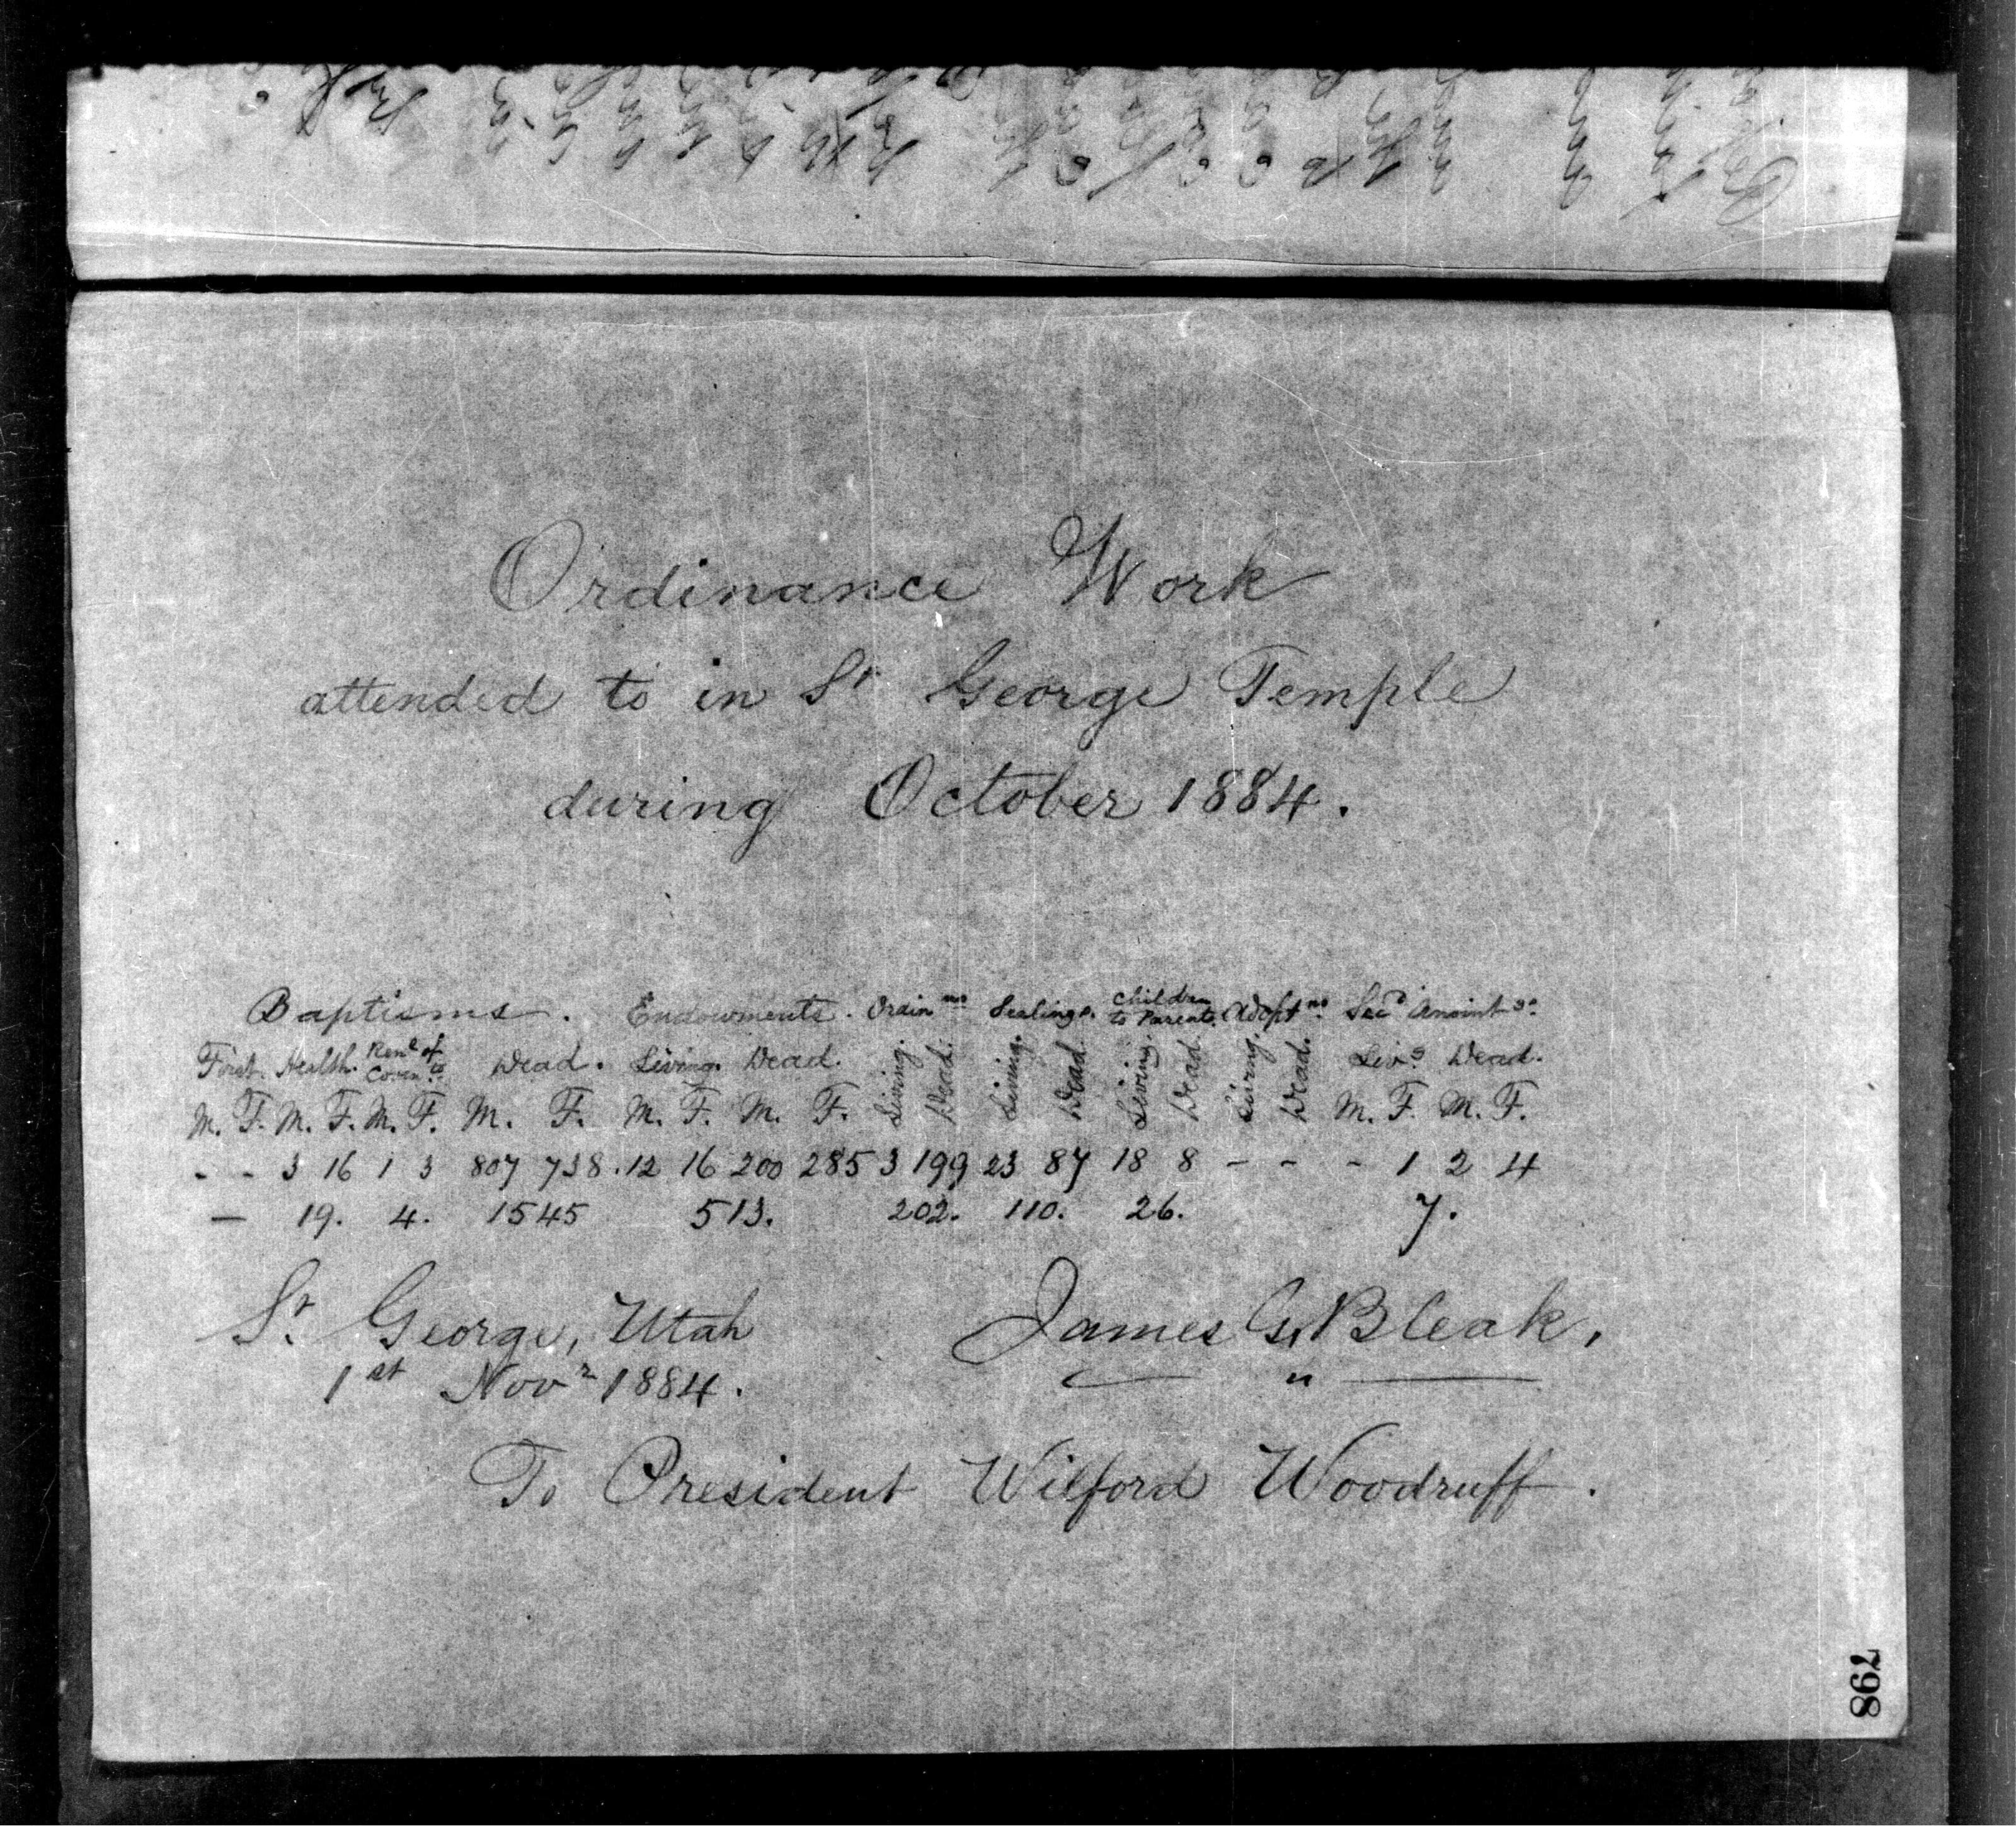 Ordinance Work
attended to in St George Temple
during October 1884.
Baptisms. Endowments. Ordain ns Sealings. Children to Parents. Adopt ns. Secd Anoint gs
First. Health. Renl of Covents Dead. Living. Dead. Living. Dead. Living. Dead. Living. Dead. Living. Dead. Livg. Dead.
M. F. M. F. M. F. M. F. M. F. M. F. M. F. M. F.
- - 3 16 1 3 807 738. 12 16 200 285 3 199 23 87 18 8 - - - 1 2 4
— 19. 4. 1545 513. 202. 110. 26. 7.
St. George, Utah
1st Novr 1884.
James G. Bleak,
To President Wilford Woodruff.
798